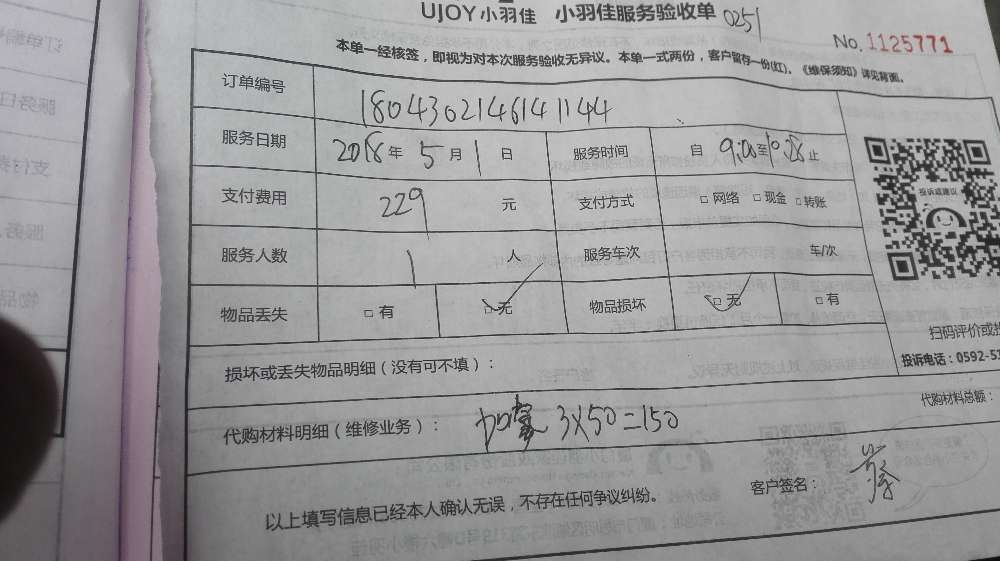 UJOY小羽佳 小羽佳服务验收单 0251
No. 1125771
本单一经核签，即视为对本次服务验收无异议。本单一式两份，客户留存一份(红)。《维保须知》详见背面。
订单编号 1804302146141144
服务日期 2018年 5月1日 服务时间 自 9:00至10:28止
支付费用 229 元 支付方式 □网络 □现金 □转账
投诉或建议
服务人数 1 人 服务车次 车/次
物品丢失 □有 □无 物品损坏 □无 □有
扫码评价或投
损坏或丢失物品明细（没有可不填）：
投诉电话：0592-5
代购材料明细（维修业务）： 加氟 3X50=150
代购材料总额：
以上填写信息已经本人确认无误，不存在任何争议纠纷。
客户签名：